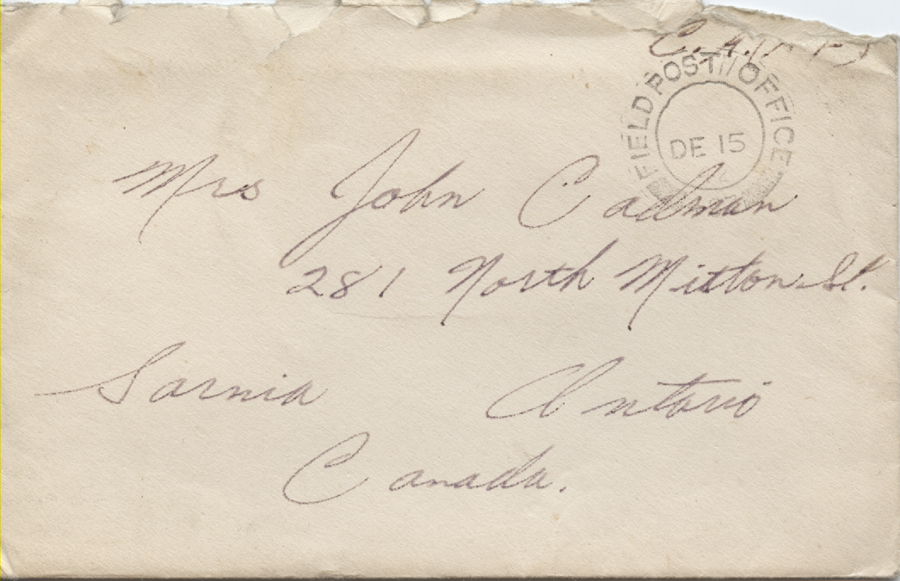 FIELD POST OFFICE
DE 15
Mrs John Calman
281 North Mitton St.
Sarnia Ontario
Canada.